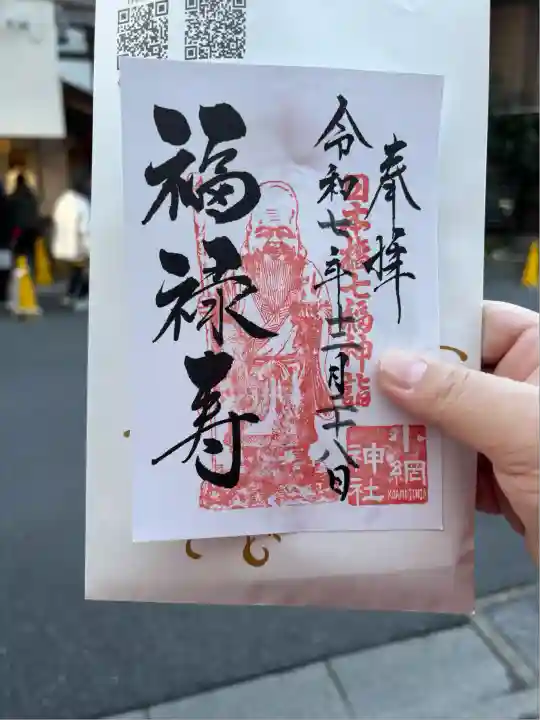 奉拝
日本橋七福神詣
令和七年十二月二十八日
福禄寿
小網
神社
KOAMIJINJA